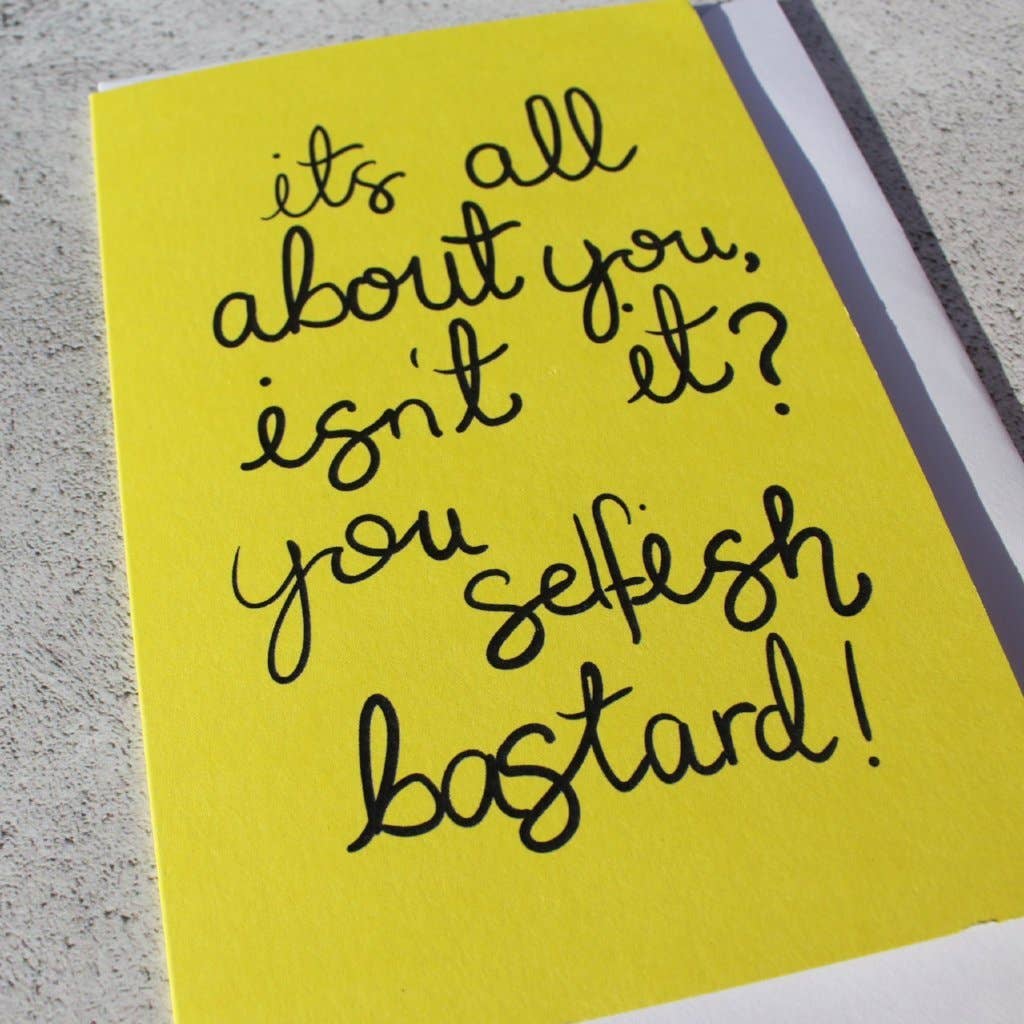 its all
about you,
isn't it?
you selfish
bastard!